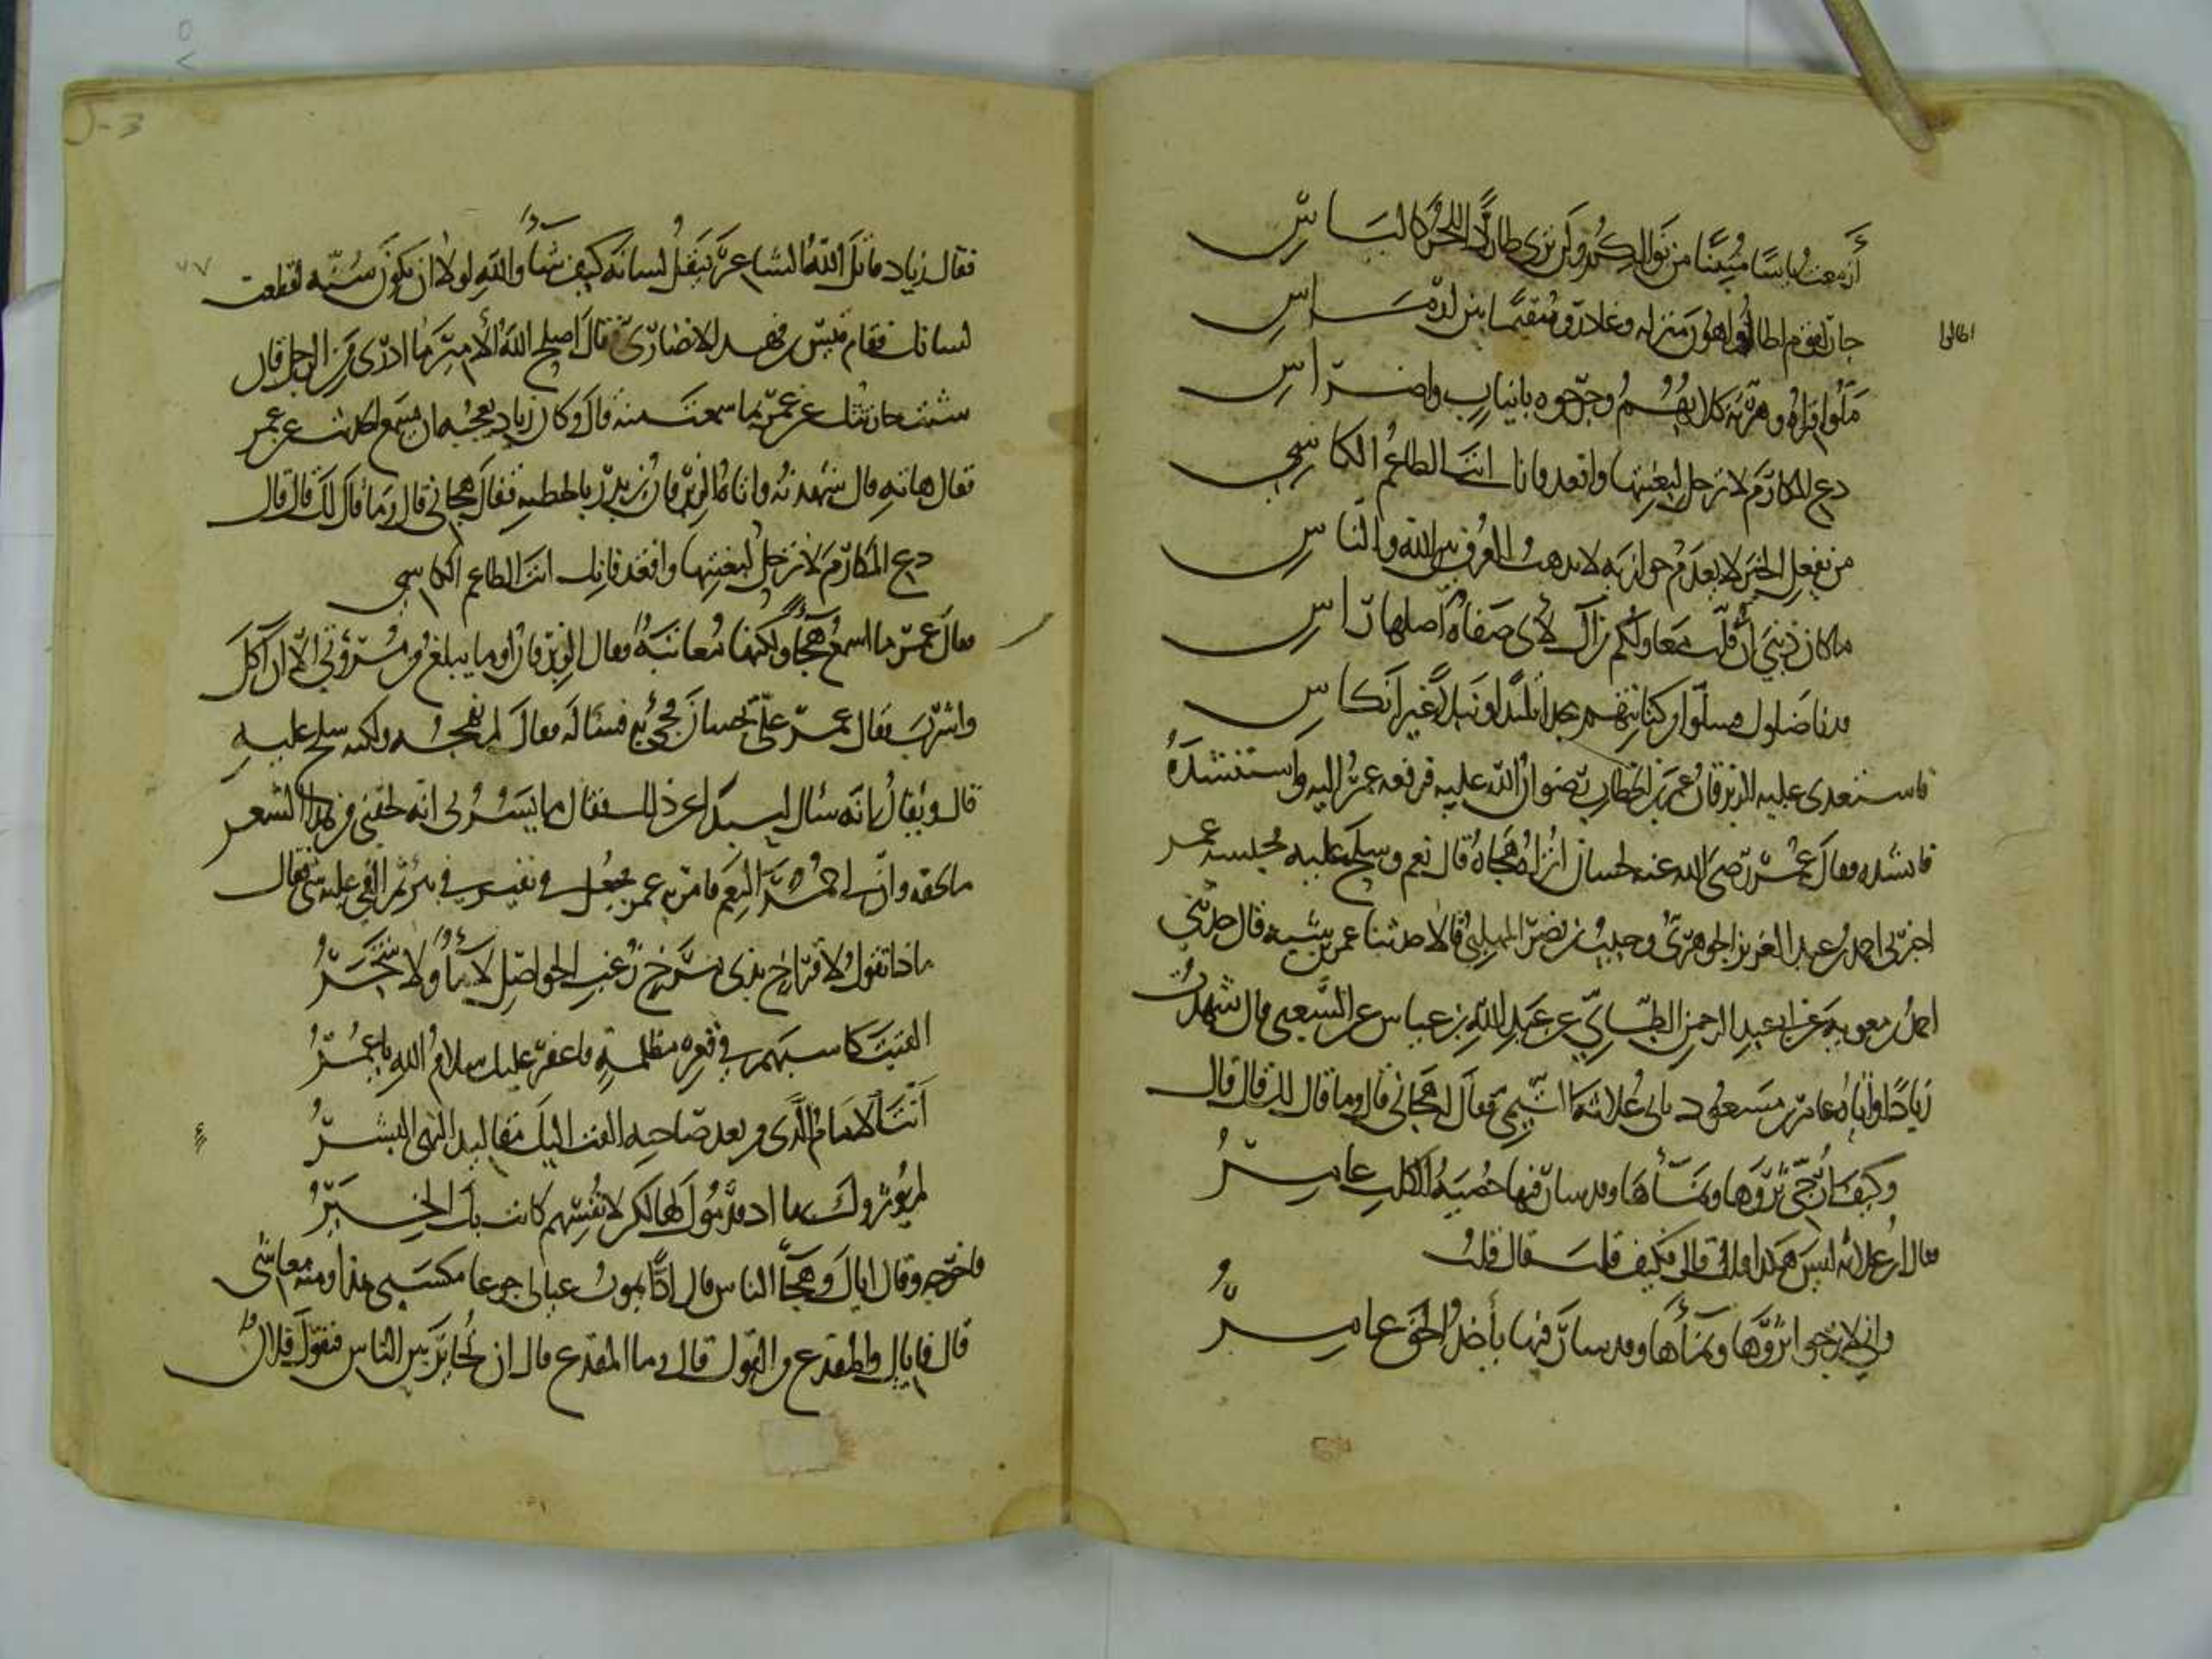 أزمعت يأسا مبينا من نوالكم ولن ترى طاردا للحر كالياس
جار لقوم اطالوا هون منزله وغادروه مقيما بين ارماس
اطالوا
ملوا قراه وهرته كلابهم وجرحوه بانياب واضراس
دع المكارم لا ترحل لبغيتها واقعد فانك انت الطاعم الكاسي
من يفعل الخير لا يعدم جوازيه لا يذهب العرف بين الله والناس
ما كان ذنبي أن فلت معاولكم من آل لأي صفاة أصلها راس
قد ناضلوك فسلوا من كنانتهم مجدا تليدا ونبلا غير انكاس
فاستعدى عليه الزبرقان عمر بن الخطاب رضوان الله عليه فرفعه عمر اليه واستنشده
فانشده فقال عمر رضي الله عنه لحسان اتراه هجاه قال نعم وسلح عليه فحبسه عمر
اخبرني احمد بن عبد العزيز الجوهري وحبيب بن نصر المهلبي قالا حدثنا عمر بن شبه قال حدثني
احمد بن معويه عن ابي عبد الرحمن الطائي عن عبد الله بن عياش عن الشعبي قال شهدت
زيادا واتاه عامر بن مسعود بابي علاثة التيمي فقال انه هجاني قال وما قال لك قال قال
وكيف ارجي ثروها ونماءها وقد سار فيها خصية الكلب عامر
فقال ابو علاثه ليس هكذا قلت قال فكيف قلت قال قلت
واني لارجو ثروها ونماءها وقد سار فيها يأخذ الحق عامر
فقال زياد قاتل الله الشاعر ينقل لسانه كيف شاء والله لولا ان تكون سنه لقطعت
لسانك فقام قيس بن فهد الانصاري فقال اصلح الله الأمير ما ادري من الرجل فان
شئت حدثتك عن عمر بما سمعت منه قال وكان زياد يعجبه ان يسمع الحديث عن عمر
فقال هاته قال شهدته واتاه الزبرقان بن بدر بالحطيه فقال هجاني قال وما قال لك قال قال
دع المكارم لا ترحل لبغيتها واقعد فانك انت الطاعم الكاسي
فقال عمر ما اسمع هجاء ولكنها معاتبة فقال الزبرقان او ما يبلغ من مروءتي الا ان آكل
واشرب فقال عمر علي بحسان فجيء به فسأله فقال لم يهجه ولكنه سلح عليه
قال ويقال انه سال لبيدا عن ذلك فقال ما يسرني انه لحقني من هذا الشعر
ما لحقه وان لي حمر النعم فامر به عمر فجعل في نقير في بئر ثم القي عليه شي فقال
ماذا تقول لافراخ بذي مرخ زغب الحواصل لا ماء ولا شجر
القيت كاسبهم في قعر مظلمة فاغفر عليك سلام الله يا عمر
أنت الامام الذي من بعد صاحبه القت اليك مقاليد النهى البشر
لم يؤثروك بها اذ قدموك لها لكن لانفسهم كانت بك الخير
فاخرجه وقال اياك وهجاء الناس قال اذا يموت عيالي جوعا مكسبي هذا ومنه معاشي
قال فاياك والمقذع من القول قال وما المقذع قال ان تخاير بين الناس فتقول فلان